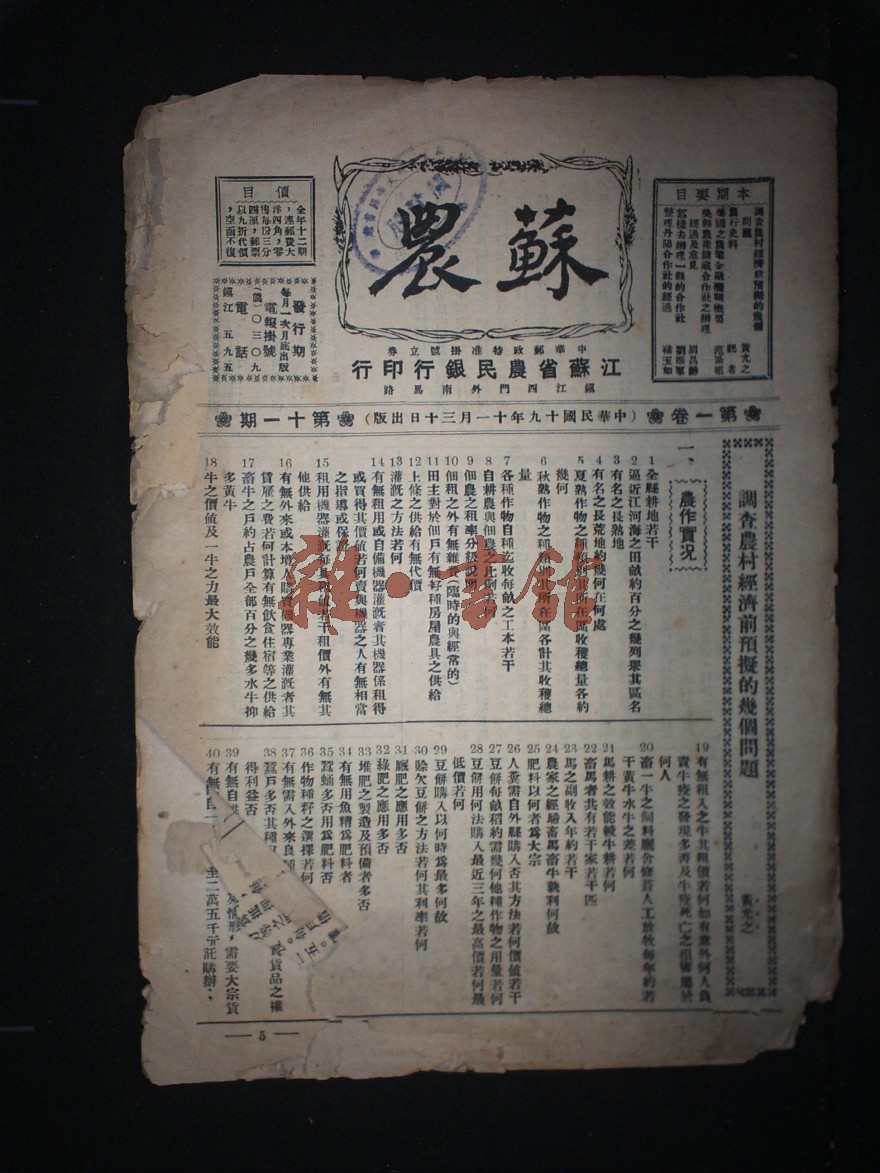 本期要目
調查農村經濟前預擬的幾個問題 黃光之
農行史料
吳縣農產儲藏合作社之辦理經過及意見
怎樣去辦理一縣的合作社
整理丹陽合作社的經過
蘇農
中華郵政特准掛號立券
江蘇省農民銀行印行
鎮江西門外南馬路
價目
全年十二期
，連郵費大
洋四角，零
售每份三分
四厘，郵票
以九折代價
，空函不復
發行期
每月一次月底出版
電報掛號
(農)〇三〇九
電話
鎮江五九五
第一卷 (中華民國十九年十一月三十日出版) 第十一期
調查農村經濟前預擬的幾個問題 黃光之
一、農作實況
1 全縣耕地若干
2 逼近江河海之田畝約百分之幾列舉其區名
3 有名之長熟地
4 有名之長荒地約幾何在何處
5 夏熟作物之種類別其所在區收穫總量各約
幾何
6 秋熟作物之種類別其所在區各計其收穫總
量
7 各種作物自種迄收每畝之工本若干
8 自耕農與佃農之比例若何
9 佃農之租率分別說明
10 佃租之外有無雜費(臨時的與經常的)
11 田主對於佃戶有無籽種房屋農具之供給
12 上條之供給有無代價
13 灌漑之方法若何
14 有無租用或自備機器灌漑者其機器係租得
或買得其價値若何賣與機器之人有無相當
之指導或保證
15 租用機器灌漑每具取值若干租價外有無其
他供給
16 有無外來或本境人購買機器專業灌漑者其
賃雇之費若何計算有無飲食住宿等之供給
17 畜牛之戶約占農戶全部百分之幾多水牛抑
多黃牛
18 牛之價値及一牛之力最大效能
19 有無租入之牛其租價若何如有意外何人負
責牛疫之發現多否及牛疫死亡之損害屬於
何人
20 畜一牛之飼料廠舍修葺人工放牧每年約若
干黃牛水牛之差若何
21 馬耕之效能較牛耕若何
22 畜馬者共有若干家若干匹
23 馬之副收入年約若干
24 農家之經驗畜馬畜牛孰利何故
25 肥料以何者爲大宗
26 人糞需自外縣購入否其方法若何價値若干
27 豆餅每畝稻約需幾何他種作物之用量若何
28 豆餅用何法購入最近三年之最高價若何最
低價若何
29 豆餅購入以何時爲最多何故
30 賒欠豆餅之方法若何其利率若何
31 廐肥之應用多否
32 綠肥之應用多否
33 堆肥之製造及預備者多否
34 有無用魚糟爲肥料者
35 蠶蛹多否用爲肥料否
36 作物種籽之選擇若何
37 有無需入外來良種
38 蠶戶多否其種
貨品之權
得利益否
39 有無自
情形，需要大宗貨
40 有無
至二萬五千元託購辦，
— 5 —
雜·書館